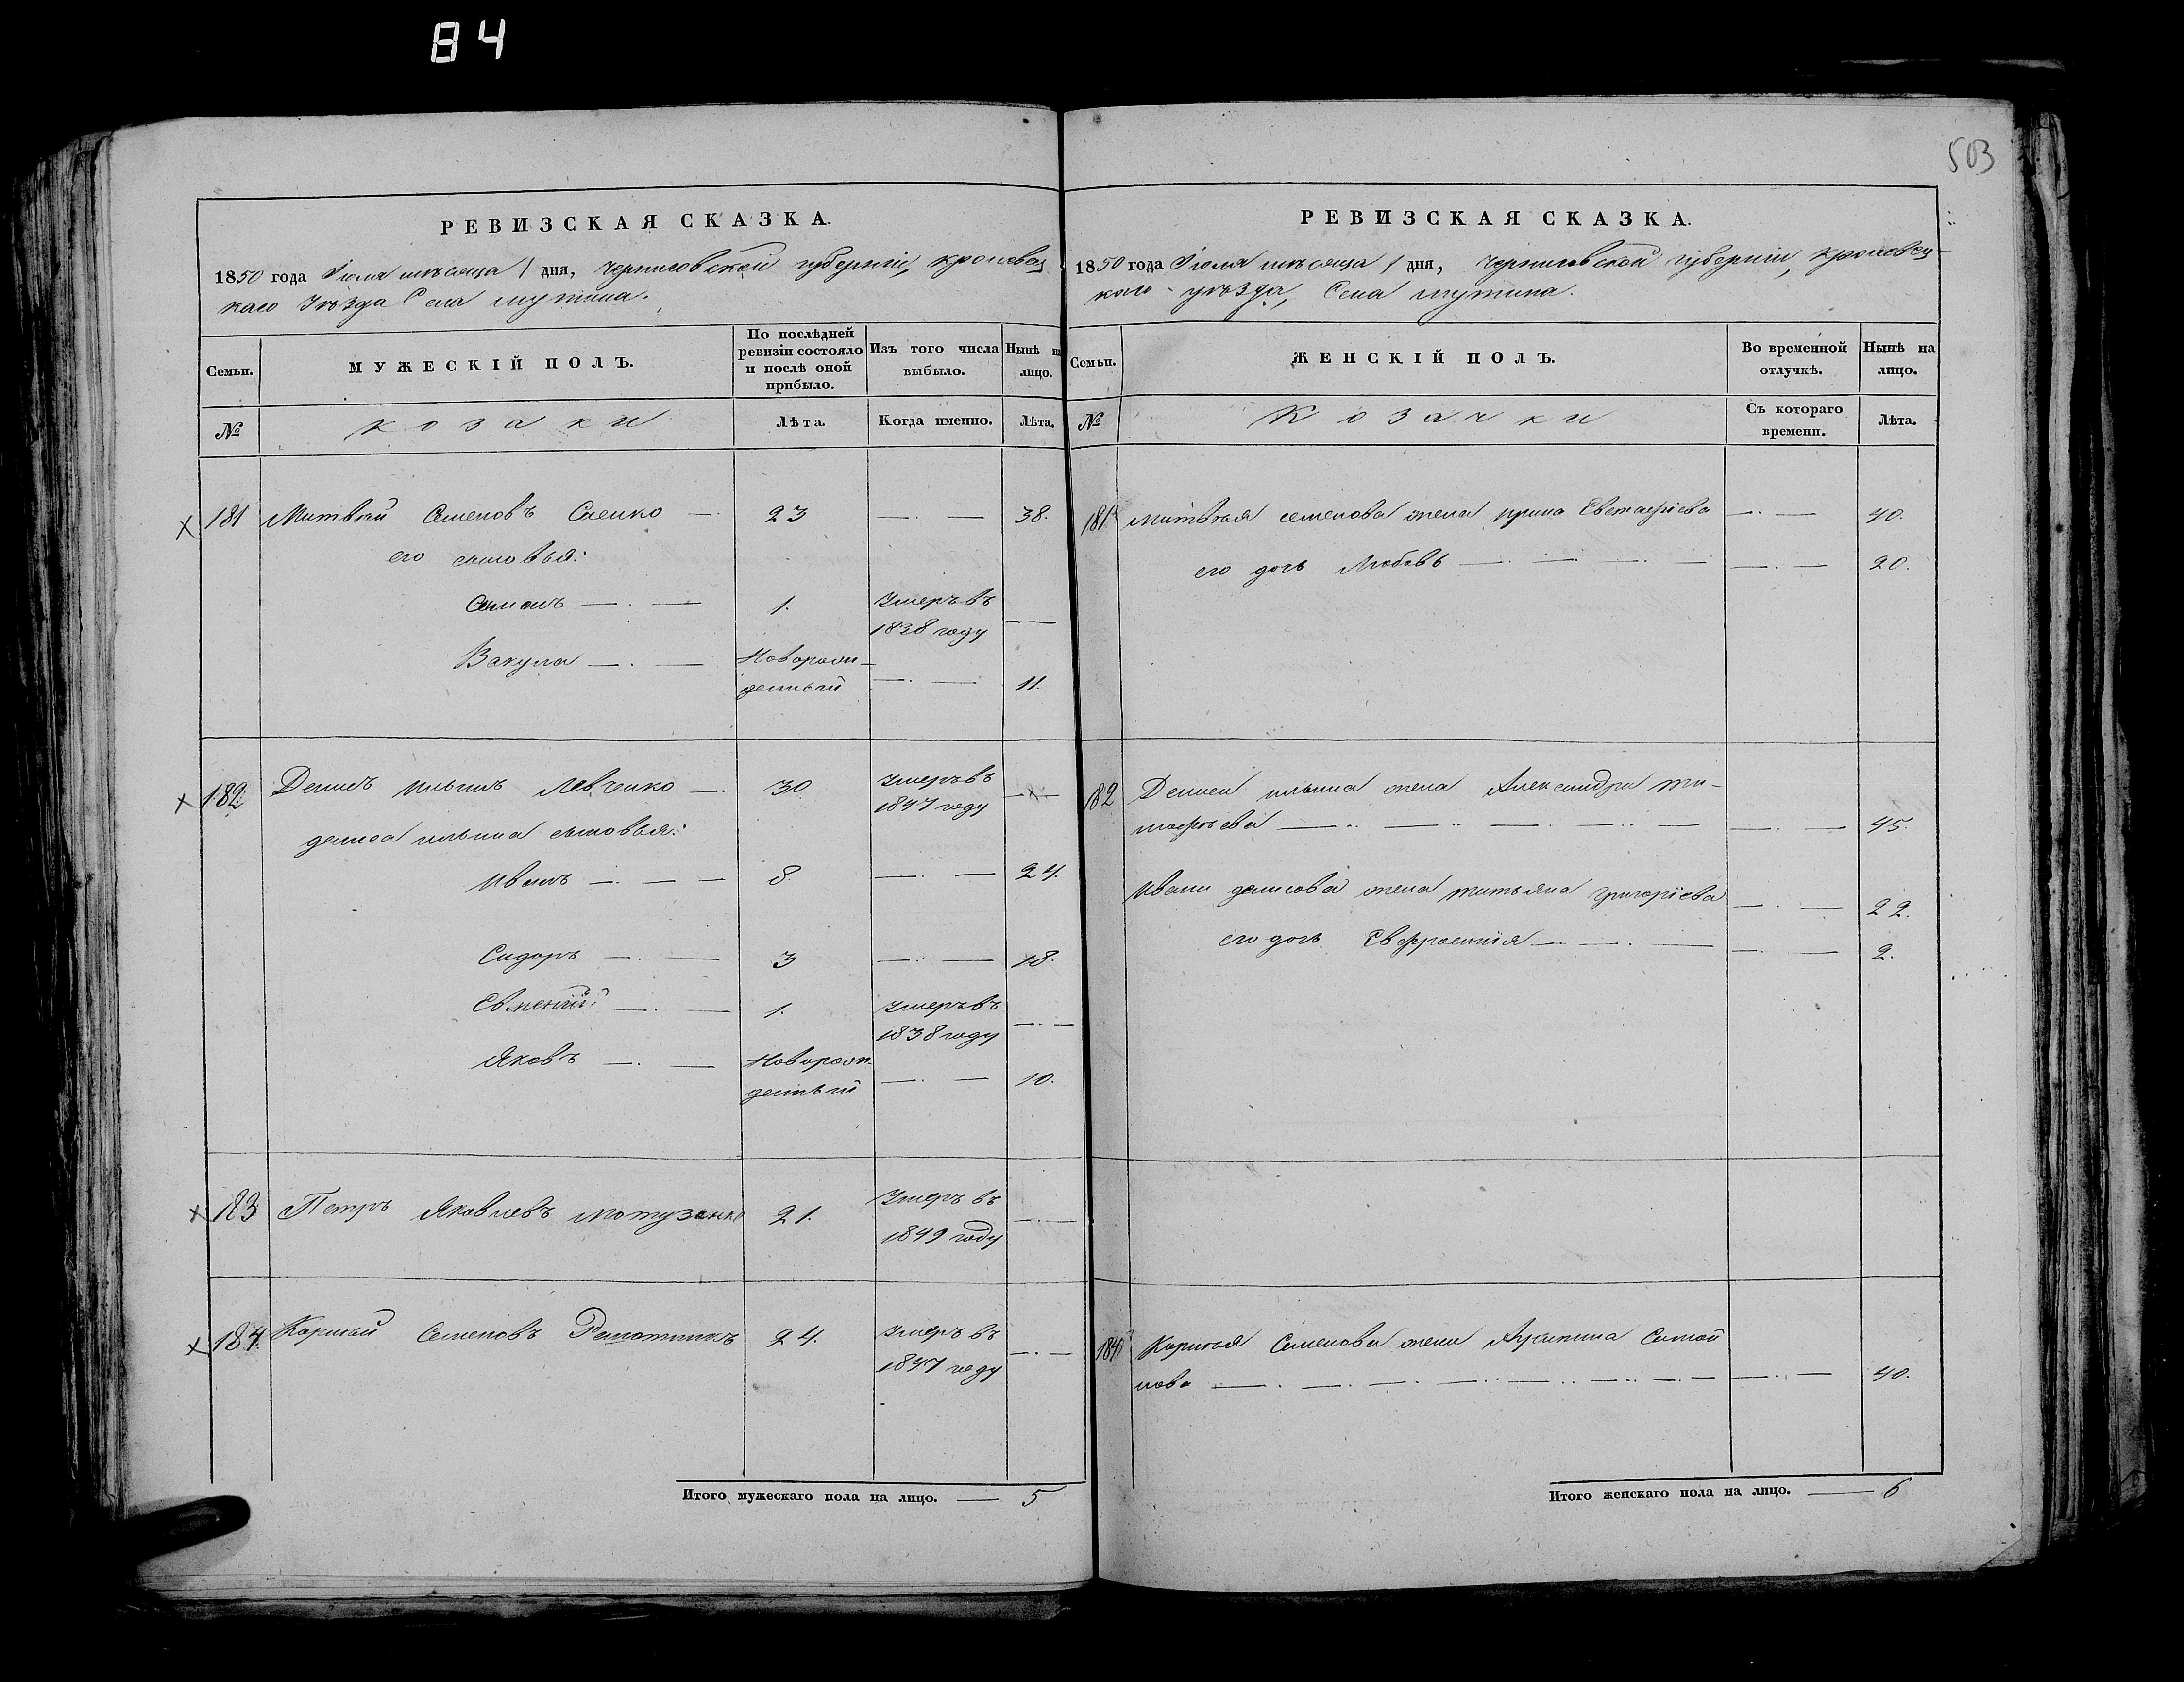 84
503
РЕВИЗСКАЯ СКАЗКА.
1850 года Іюля мѣсяца 1 дня, Черниговской губерніи, Кролевец
каго Уѣзда Села Мутина.
Семьи.
МУЖЕСКІЙ ПОЛЪ.
По послѣдней ревизіи состояло и послѣ оной прибыло.
Изъ того числа выбыло.
Нынѣ на лицо.
№
Козаки
Лѣта.
Когда именно.
Лѣта.
181 Матвѣй Семеновъ Саенко — 23 — 38.
его сыновья:
Семенъ — 1. Умеръ въ
1838 году —
Вакула — Новорож-
денный — 11.
182. Денисъ Ильинъ Левченко — 30. Умеръ въ
1847 году —
Дениса Ильина сыновья:
Иванъ — 8. — 24.
Сидоръ — 3 — 18.
Евменій — 1. Умеръ въ
1838 году —
Яковъ — Новорож-
денный — 10.
183 Петръ Яковлевъ Мотузенко 21. Умеръ въ
1849 году —
184. Корнѣй Семеновъ Решотникъ 24. Умеръ въ
1847 году —
Итого мужескаго пола на лицо. — 5
РЕВИЗСКАЯ СКАЗКА.
1850 года Іюля мѣсяца 1 дня, Черниговской губерніи, Кролевец-
каго уѣзда, Села Мутина.
Семьи.
ЖЕНСКІЙ ПОЛЪ.
Во временной отлучкѣ.
Нынѣ на лицо.
№
Козачки
Съ котораго времени.
Лѣта.
181 Матвѣя Семенова жена Ирина Евстафіева — 40.
его дочь Любовь — 20.
182 Дениса Ильина жена Александра Ти-
мофѣева — 45.
Ивана Денисова жена Татьяна Григоріева — 22.
его дочь Евфросинія — 2.
184 Корнѣя Семенова жена Агрипина Самой
лова — 40.
Итого женскаго пола на лицо. — 6